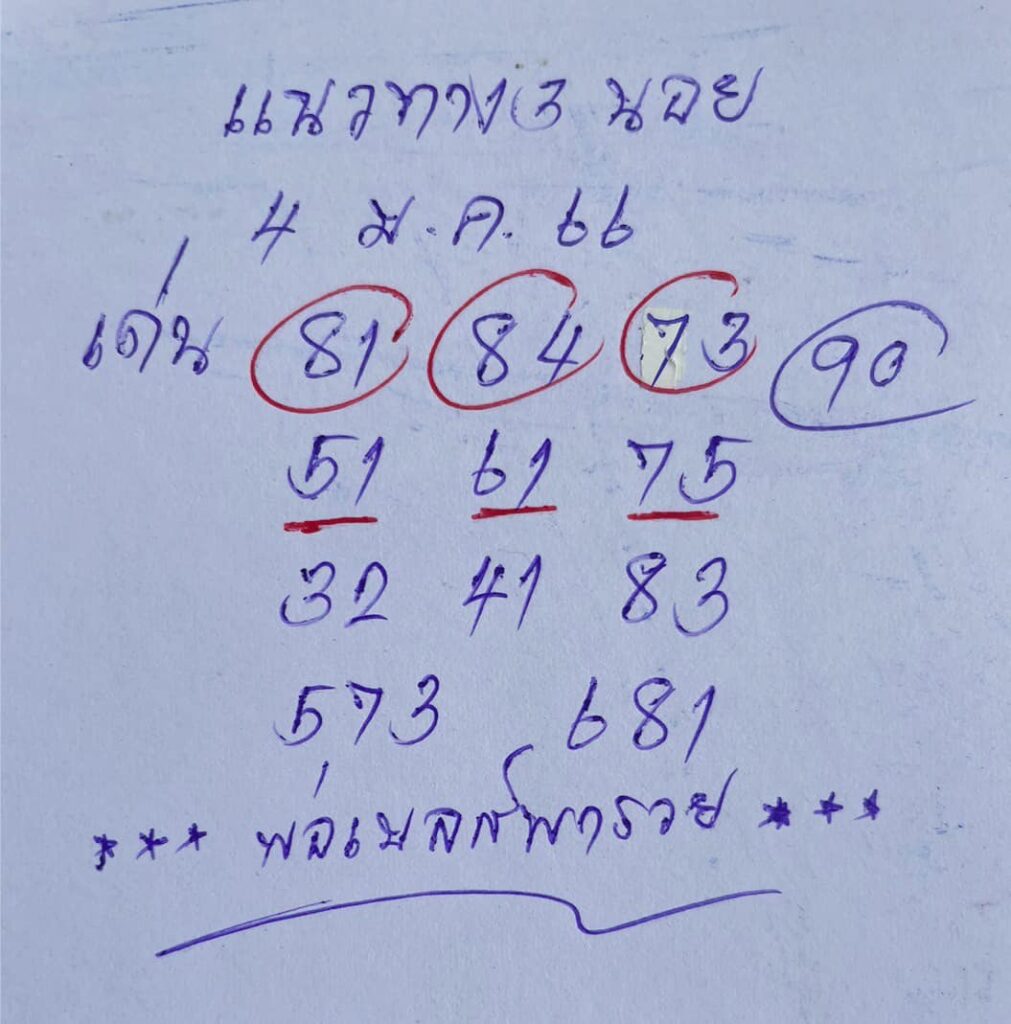 แนวทาง ฮ นอย
4 ม.ค. 66
เด่น 81 84 73 90
51 61 75
32 41 83
573 681
*** พ่อเมลล์พารวย ***